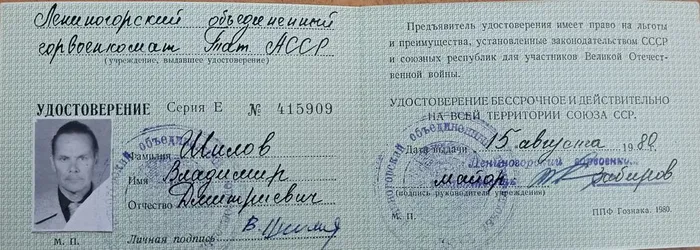 Лениногорский объединенный
горвоенкомат Тат АССР
(учреждение, выдавшее удостоверение)
УДОСТОВЕРЕНИЕ Серия Е № 415909
Фамилия Шилов
Имя Владимир
Отчество Дмитриевич
М. П.
Личная подпись
Предъявитель удостоверения имеет право на льготы
и преимущества, установленные законодательством СССР
и союзных республик для участников Великой Отечест-
венной войны.
УДОСТОВЕРЕНИЕ БЕССРОЧНОЕ И ДЕЙСТВИТЕЛЬНО
НА ВСЕЙ ТЕРРИТОРИИ СОЮЗА ССР.
Дата выдачи 15 августа 1980
Лениногорский горвоенком
майор Забиров
(подпись руководителя учреждения)
М. П.
ППФ Гознака. 1980.